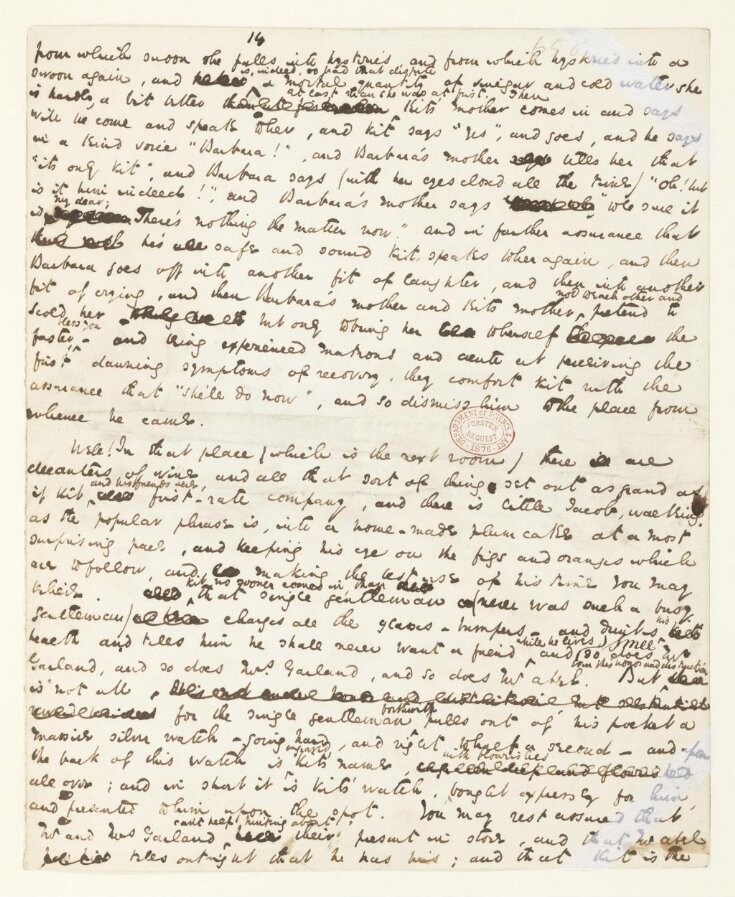 14
from which swoon she falls into hysterics and from which hysterics into a
swoon again, and is, indeed, so bad that despite a mortal quantity of vinegar and cold water she
is hardly a bit better at last than she was at first. Then Kit's mother comes in and says
will he come and speak to her, and Kit says "Yes", and goes, and he says
in a kind voice "Barbara!", and Barbara's mother tells her that
"its only Kit", and Barbara says (with her eyes closed all the time) "oh! but
is it him indeed!", and Barbara's mother says "To be sure it
is my dear; There's nothing the matter now." and in further assurance that
he's safe and sound Kit speaks to her again, and then
Barbara goes off into another fit of laughter, and then into another
fit of crying, and then Barbara's mother and Kits mother nod to each other and pretend to
scold her but only to bring her to herself the
faster, bless you - and being experienced matrons and acute at perceiving the
first dawning symptoms of recovery, they comfort Kit with the
assurance that "she'll do now", and so dismiss him to the place from
whence he came.
DEPARTMENT OF SCIENCE & ART
FORSTER
BEQUEST
1876
Well! In that place (which is the next room) there are
decanters of wine, and all that sort of thing set out as grand as
if Kit and his friends were first-rate company, and there is little Jacob, walking,
as the popular phrase is, into a home-made plum cake at a most
surprising pace, and keeping his eye on the figs and oranges which
are to follow, and making the best use of his time you may
believe. Kit no sooner comes in, than that single gentleman (never was such a busy
gentleman) charges all the glasses - bumpers - and drinks his
health and tells him he shall never want a friend while he lives, and so does Mr
Garland, and so does Mrs Garland, and so does Mr Abel. But even this honor and distinction
is not all, for the single gentleman forthwith pulls out of his pocket a
massive silver watch - going hard, and right to half a second - and upon
the back of this watch is engraved Kit's name with flourishes
all over; and in short it is Kits' watch, bought expressly for him,
and presented to him upon the spot. You may rest assured that
Mr and Mrs Garland can't help hinting about their present in store, and that Mr Abel
tells outright that he has his; and that Kit is the